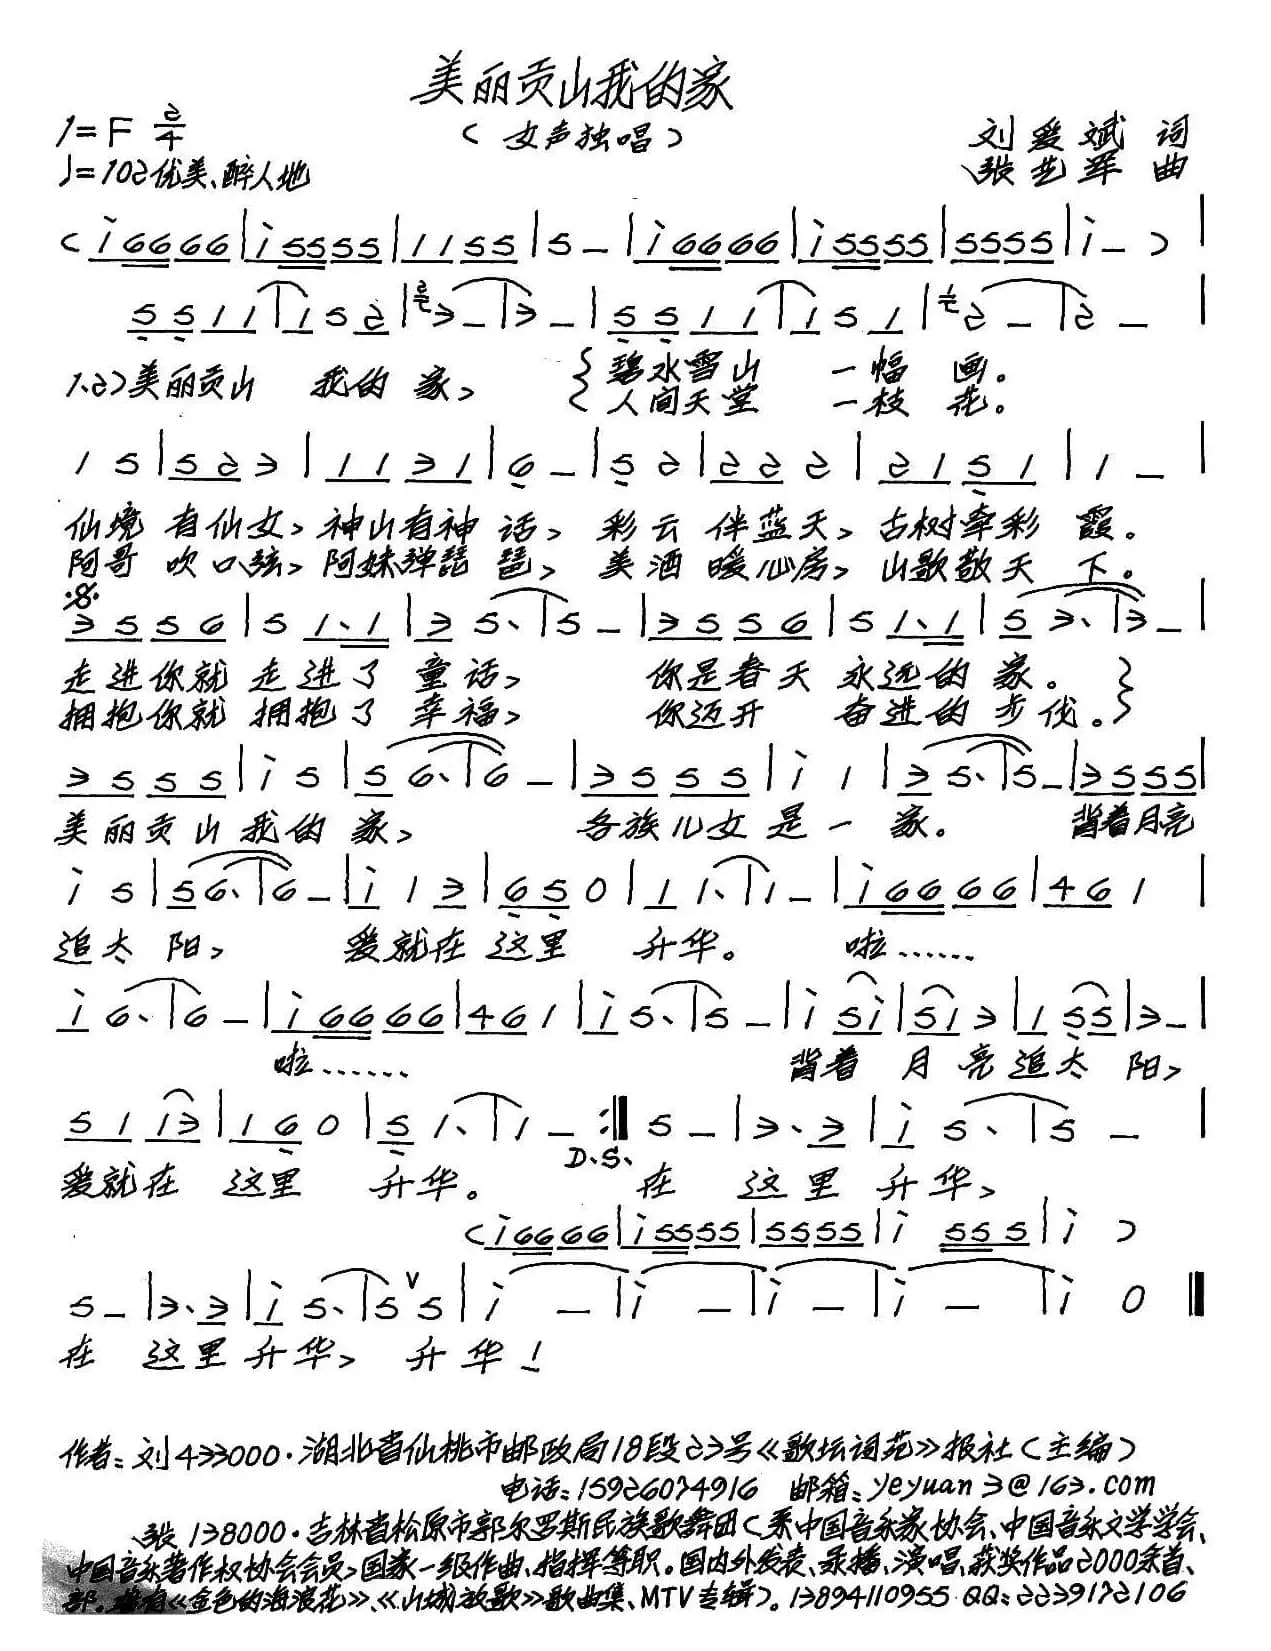 美丽贡山我的家
1=F 2/4
(女声独唱)
刘爱斌 词
♩=102 优美、醉人地
张艺军 曲
( i 6 6 6 6 | i 5 5 5 5 | 1 1 5 5 | 5 – | i 6 6 6 6 | i 5 5 5 5 | 5 5 5 5 | i – ) |
5 5 1 1 | 1 5 2 | 2 3 – | 3 – | 5 5 1 1 | 1 5 1 | 1 2 – | 2 – |
1.2)美丽贡山 我的 家, {碧水雪山 一幅 画。
{人间天堂 一枝 花。
1 5 | 5 2 3 | 1 1 3 1 | 6 – | 5 2 | 2 2 2 | 2 1 5 1 | 1 – |
仙境 有仙女, 神山有神 话, 彩云 伴蓝天, 古树牵彩 霞。
阿哥 吹口弦, 阿妹弹琵 琶, 美酒 暖心房, 山歌敬天 下。
3 5 5 6 | 5 1. 1 | 3 5. | 5 – | 3 5 5 6 | 5 1. 1 | 5 3. | 3 – |
走进你就 走进了 童话, 你是春天 永远的 家。}
拥抱你就 拥抱了 幸福, 你迈开 奋进的 步伐。}
3 5 5 5 | i 5 | 5 6. | 6 – | 3 5 5 5 | i 1 | 3 5. | 5 – | 3 5 5 5 |
美丽贡山我的 家, 各族儿女是一 家。 背着月亮
i 5 | 5 6. | 6 – | i 1 3 | 6 5 0 | 1 1. | 1 – | i 6 6 6 6 | 4 6 1 |
追太 阳, 爱就在 这里 升华。 啦……
i 6. | 6 – | i 6 6 6 6 | 4 6 1 | i 5. | 5 – | i 5 i | 5 1 3 | 1 5 5 | 3 – |
啦…… 背着 月 亮追太 阳,
5 1 1 3 | 1 6 0 | 5 1. | 1 – :‖ 5 – | 3. 3 | i 5. | 5 – |
D.S.
爱就在 这里 升华。 在 这里 升华,
( i 6 6 6 6 | i 5 5 5 5 | 5 5 5 5 | i 5 5 5 | i )
5 – | 3. 3 | i 5. | 5 ∨ 5 | i – | i – | i – | i – | i 0 ‖
在 这里升华, 升华!
作者:刘433000·湖北省仙桃市邮政局18段23号《歌坛词苑》报社(主编)
电话:15926074916 邮箱:yeyuan3@163.com
张 138000·吉林省松原市郭尔罗斯民族歌舞团(系中国音乐家协会、中国音乐文学学会、
中国音乐著作权协会会员,国家一级作曲、指挥等职。国内外发表、录播、演唱、获奖作品2000余首、
部。著有《金色的海浪花》、《山城放歌》歌曲集、MTV专辑)。13894110955 QQ:2239172106